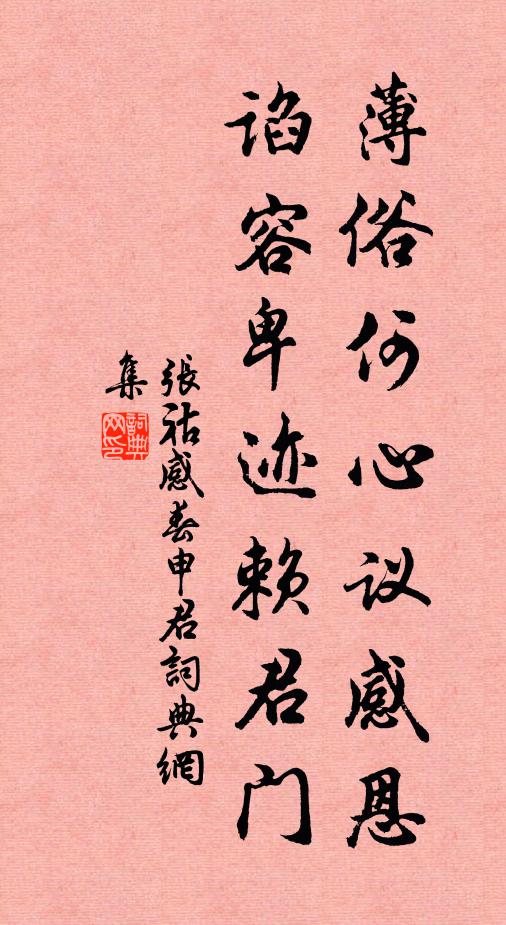 薄俗何心议感恩
谄容卑迹赖君门
張祜感春申君詞典網
集
詞典网印